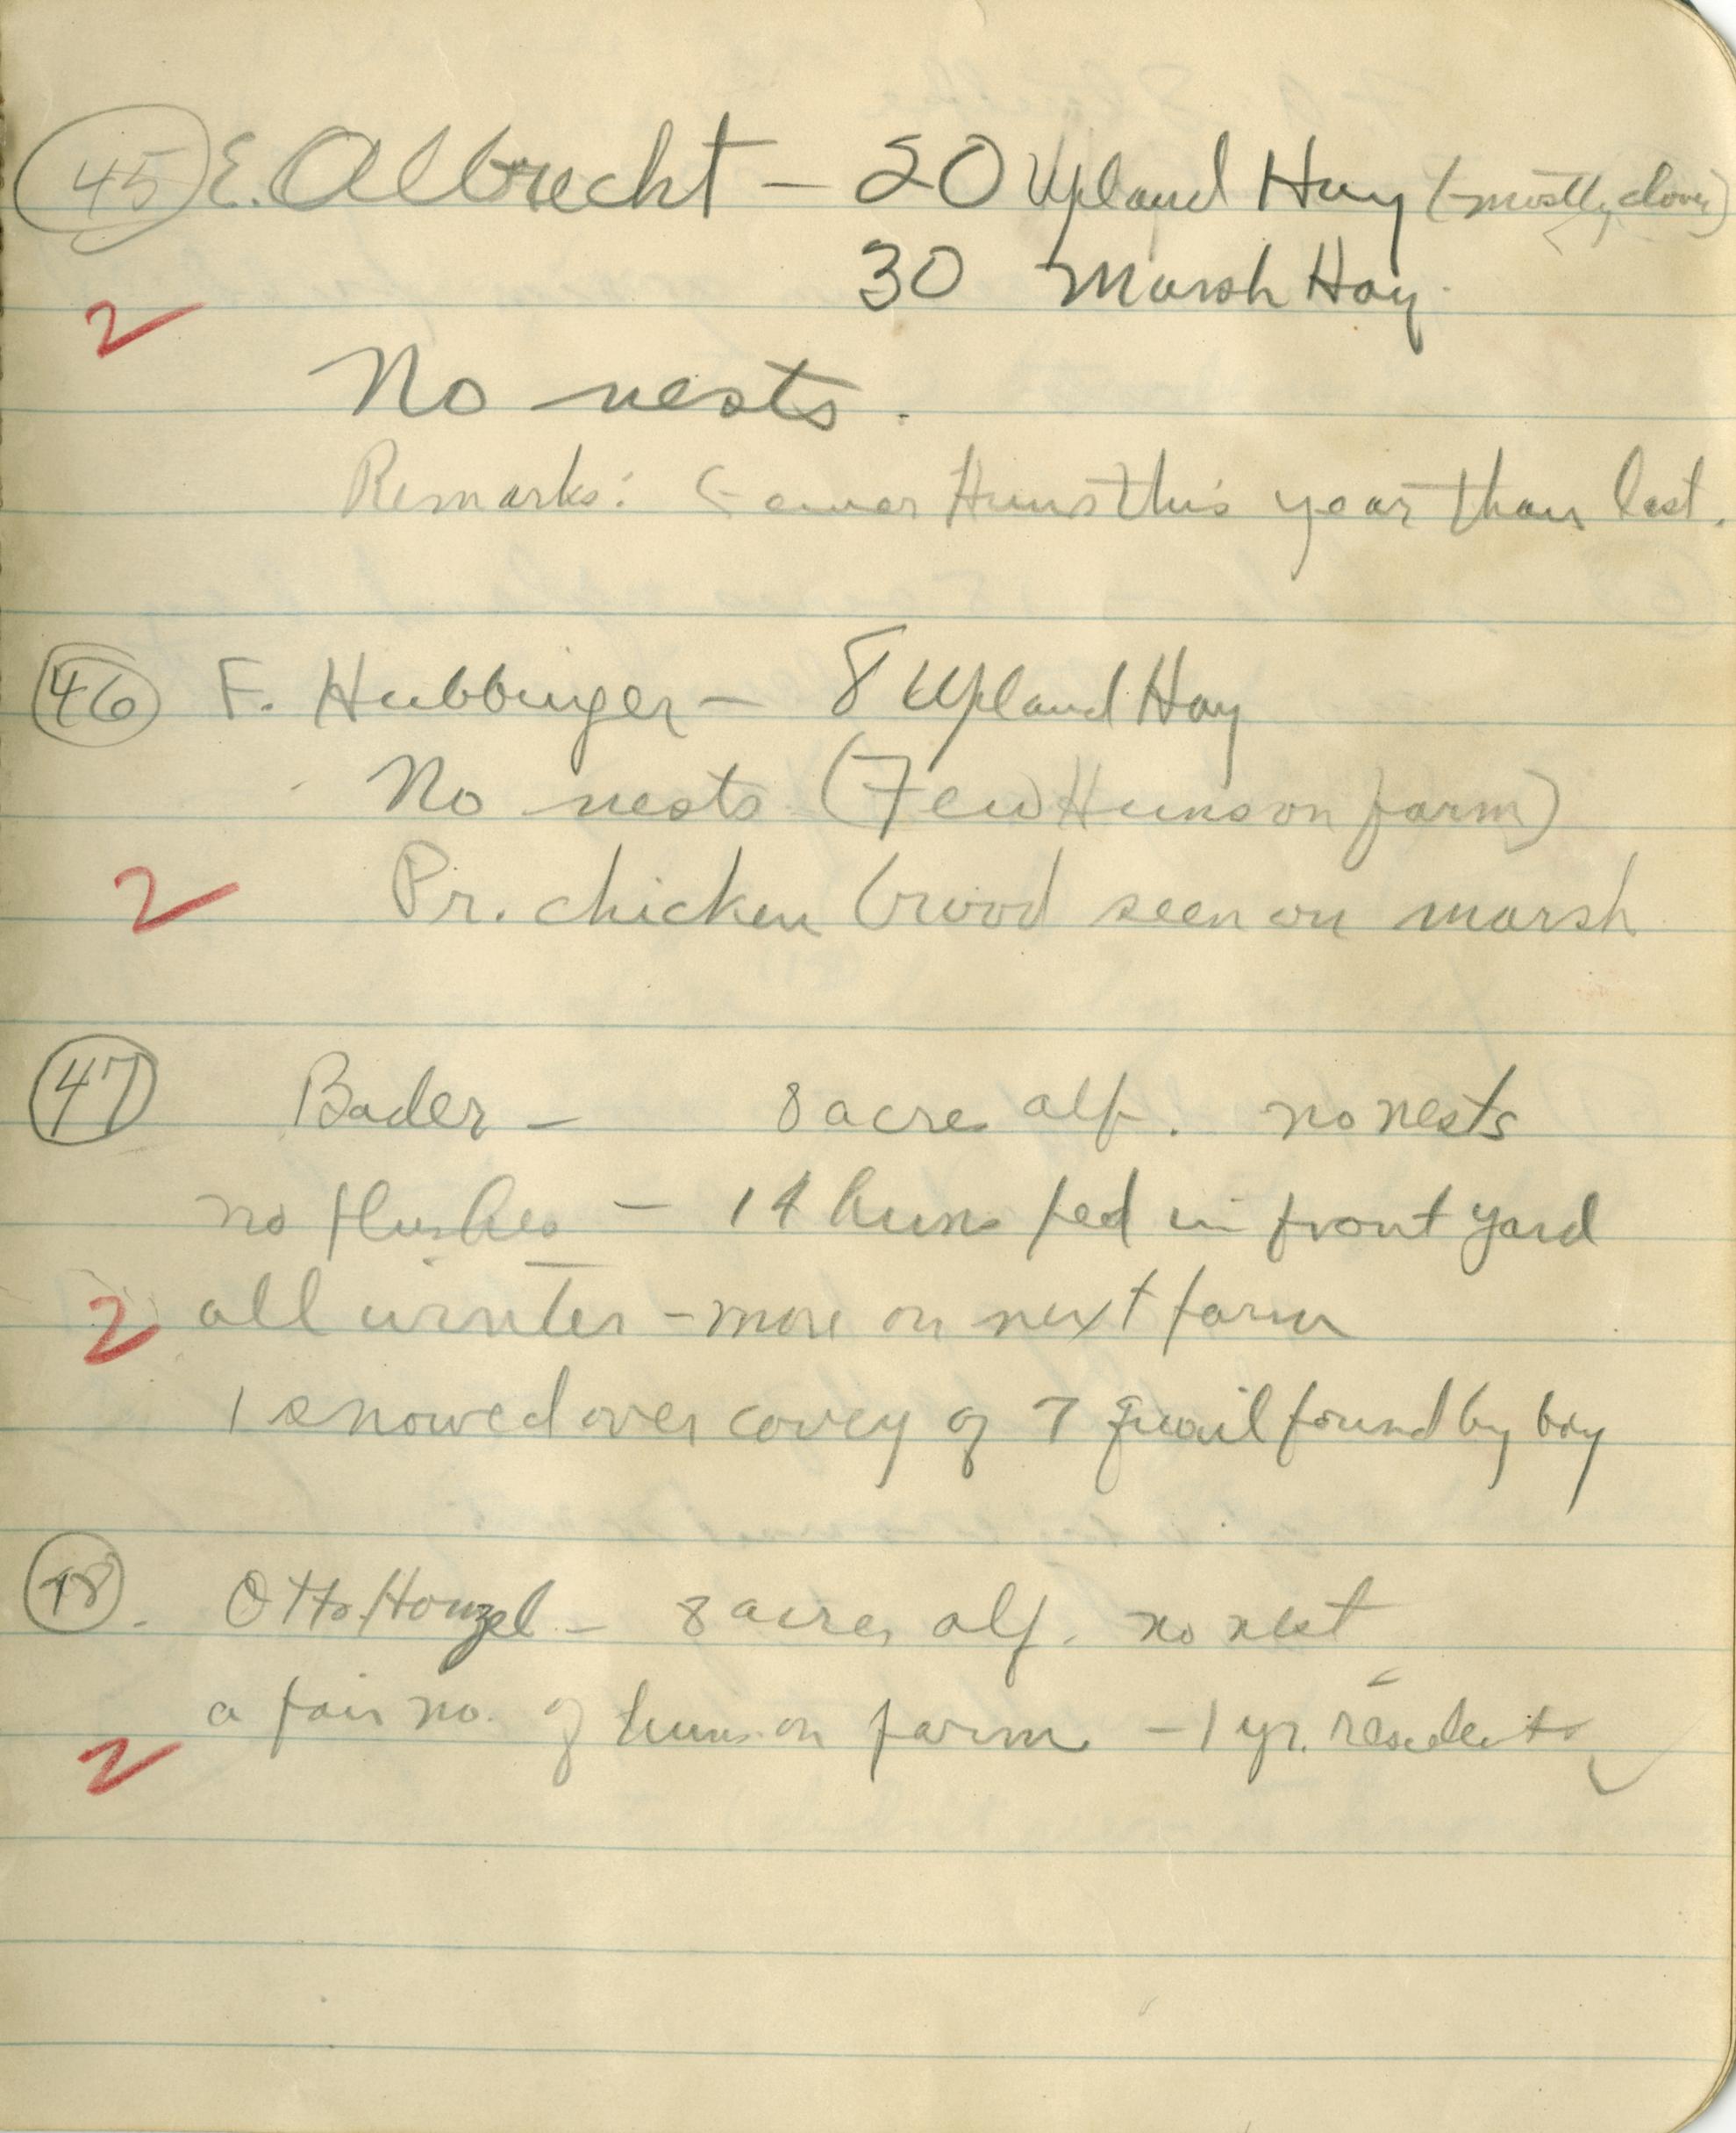 45 E. Albrecht - 20 Upland Hay (mostly clover)
30 Marsh Hay.
2
No nests.
Remarks: Fewer Huns this year than last.
46 F. Hubbinger - 8 Upland Hay
No nests (Few Huns on farm)
2 Pr. chicken brood seen on marsh
47 Bader - 8 acres alf. no nests
no flushes - 14 huns fed in front yard
2 all winter - more on next farm
1 snowed over covey of 7 quail found by boy
48. Otto Honzel - 8 acres alf. no nest
a fair no. of huns on farm - 1 yr. residents
2